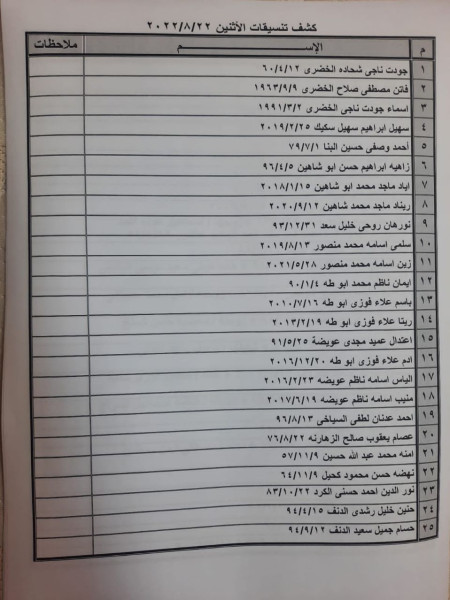 كشف تنسيقات الأثنين ٢٠٢٢/٨/٢٢
م الإســـم ملاحظات
١ جودت ناجى شحاده الخضرى ٦٠/٤/١٢
٢ فاتن مصطفى صلاح الخضرى ١٩٦٣/٩/٩
٣ اسماء جودت ناجى الخضرى ١٩٩١/٣/٢
٤ سهيل ابراهيم سهيل سكيك ٢٠١٩/٢/٢٥
٥ أحمد وصفى حسين البنا ٧٩/٧/١
٦ زاهيه ابراهيم حسن ابو شاهين ٩٦/٤/٥
٧ اياد ماجد محمد ابو شاهين ٢٠١٨/١/١٥
٨ ريناد ماجد محمد شاهين ٢٠٢٠/٩/١٢
٩ نورهان روحى خليل سعد ٩٣/١٢/٣١
١٠ سلمى اسامه محمد منصور ٢٠١٩/٨/١٣
١١ زين اسامه محمد منصور ٢٠٢١/٥/٢٨
١٢ ايمان ناظم محمد ابو طه ٩٠/١/٤
١٣ باسم علاء فوزى ابو طه ٢٠١٠/٧/١٦
١٤ ريتا علاء فوزى ابو طه ٢٠١٣/٢/١٩
١٥ اعتدال عميد مجدى عويضة ٩١/٥/٢٥
١٦ ادم علاء فوزى ابو طه ٢٠١٦/١٢/٢٠
١٧ الياس اسامه ناظم عويضه ٢٠١٦/٢/٢٣
١٨ منيب اسامه ناظم عويضه ٢٠١٧/٦/١٩
١٩ احمد عدنان لطفى السياخى ٩٦/٨/١٣
٢٠ عصام يعقوب صالح الزهارنه ٧٦/٨/٢٢
٢١ امنه محمد عبد الله حسين ٥٧/١١/٩
٢٢ نهضه حسن محمود كحيل ٦٤/١١/٩
٢٣ نور الدين احمد حسنى الكرد ٨٣/١٠/٢٢
٢٤ حنين خليل رشدى الدنف ٩٤/٤/١٥
٢٥ حسام جميل سعيد الدنف ٩٤/٩/١٢